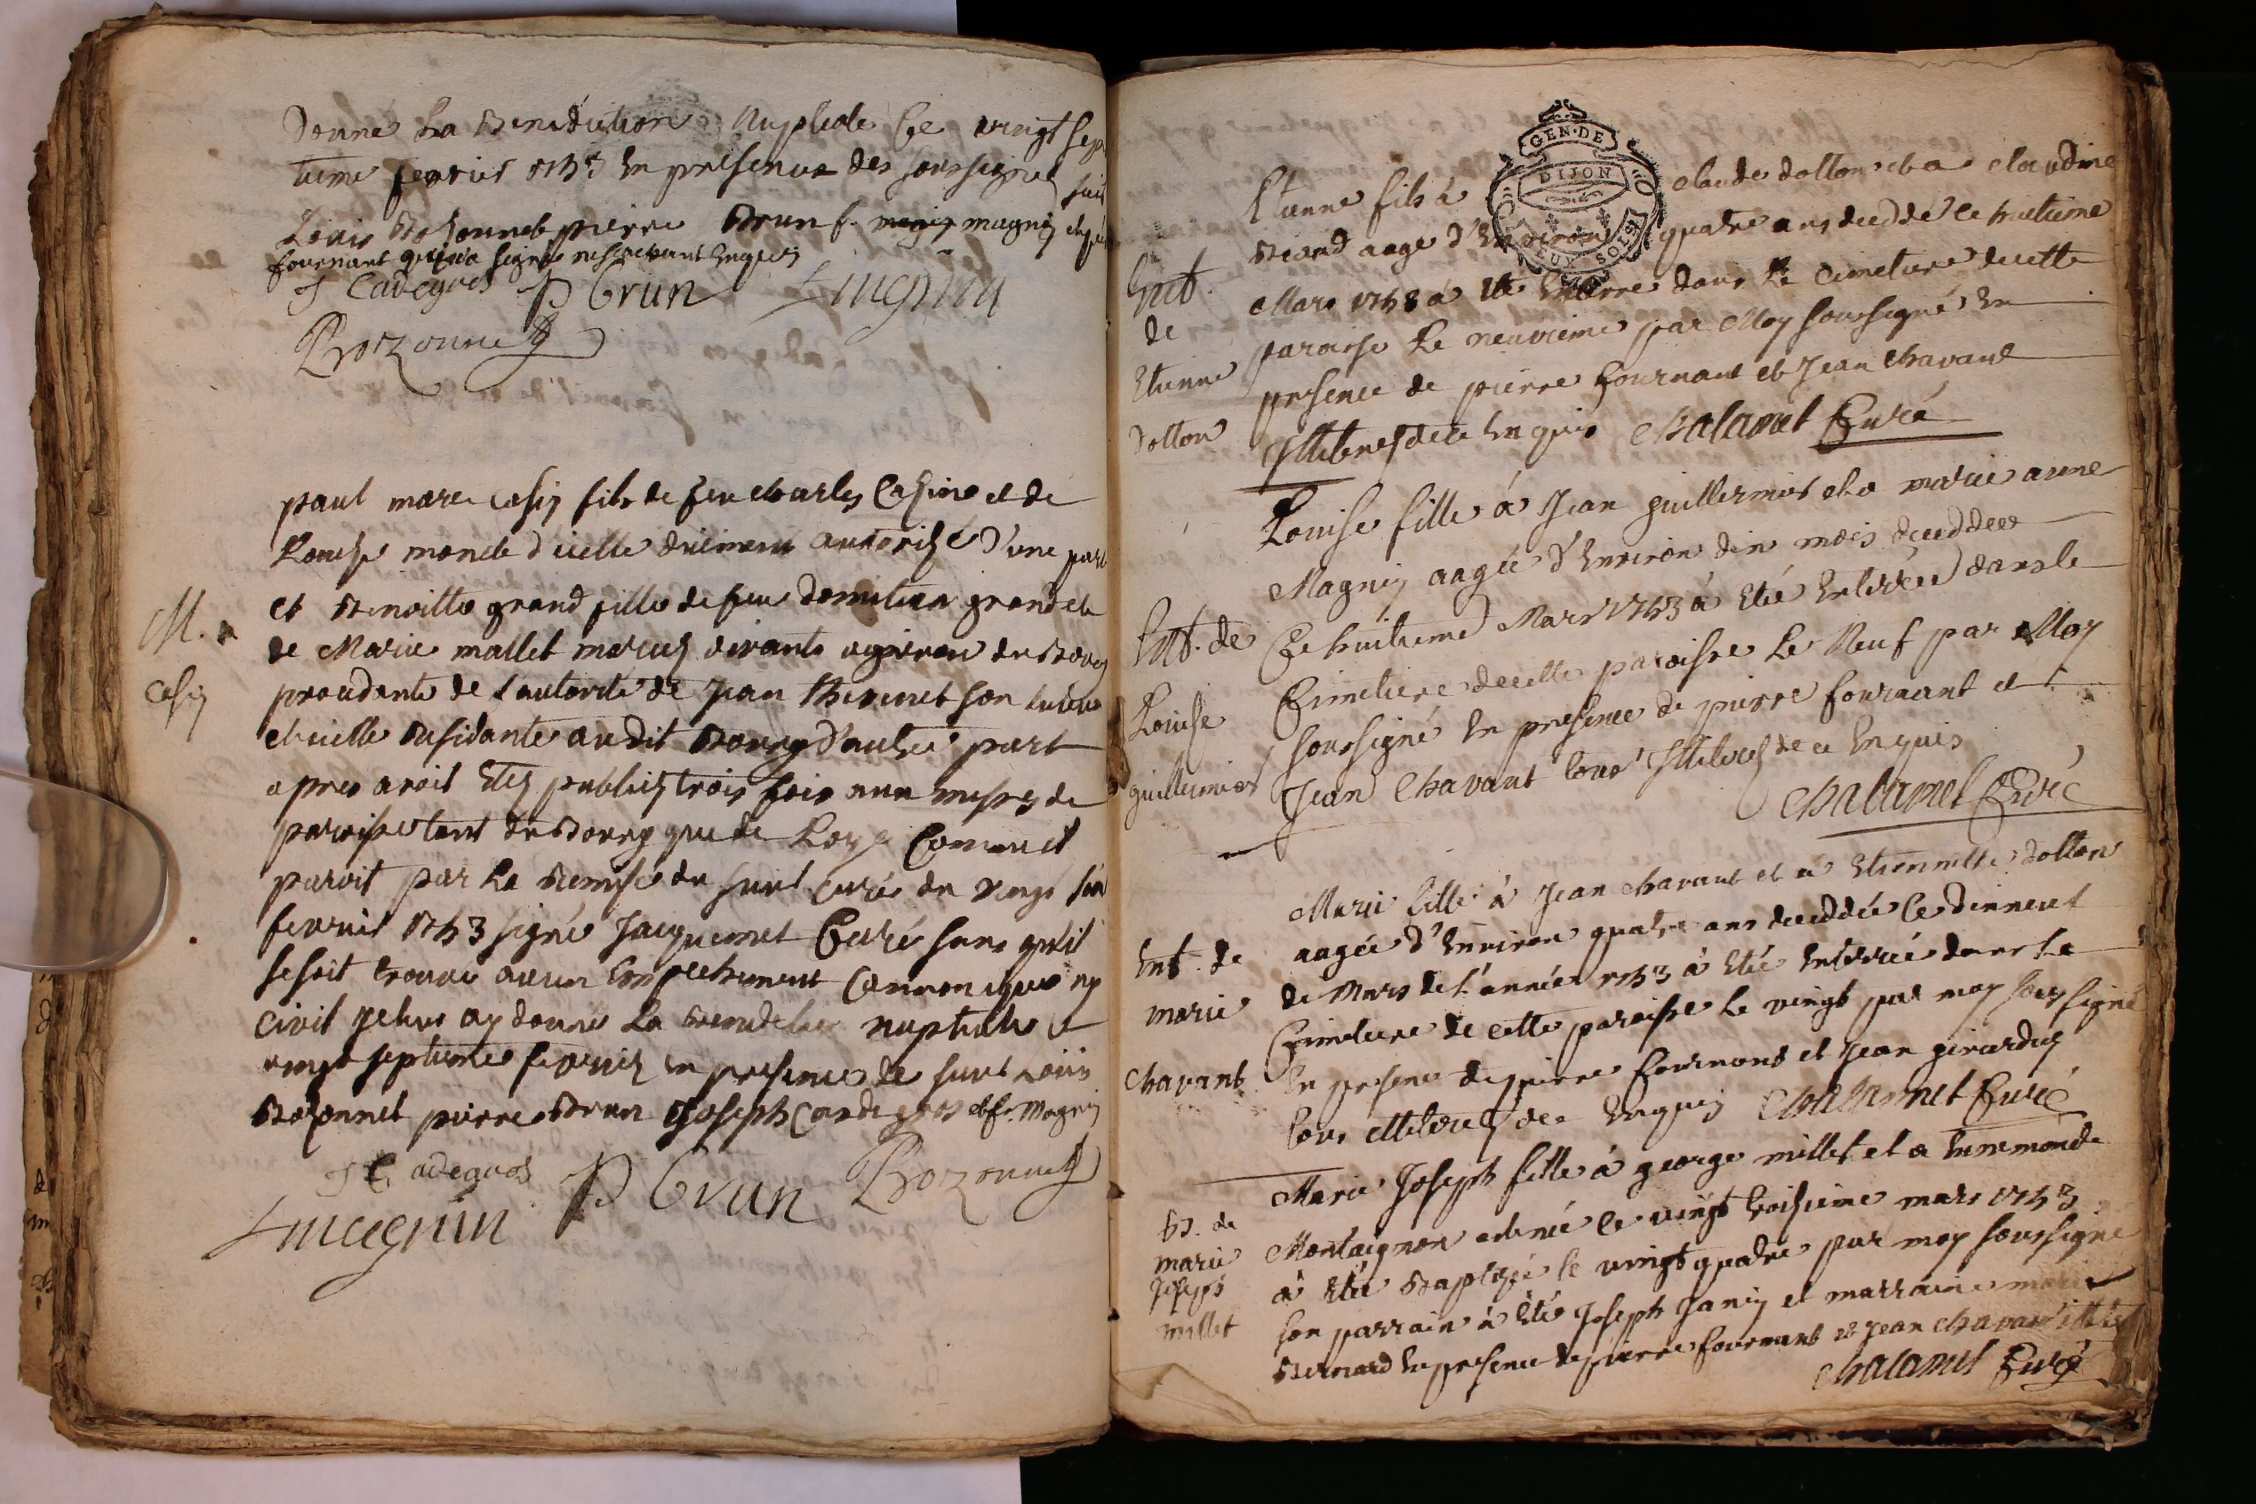 Donné La Benediction Nuptiale Ce vingt sep
tieme fevrier 1743 En presence des soussignes
Louis Bozonnet pierre Brun f. magnin
fournant qui n'a signé
J Cadegros P Brun
Bozonnet
paul marc Casin fils de feu charles Casin et de
Louise monet d'icelle duement autorisé d'une part
et Benoitte grand fille de feu domitien grand et
de Marie mallet vivants vigneron du Bourg
procedante de l'autorité de Jean thevenet son
et icelle Residante audit Bourg d'autre part
apres avoir Etes publies trois fois aux messes de
paroisse tant du Bourg que de Comme il
paroit par La Remise du sieur curé du vingt six
fevrier 1743 signé Jacquemet Curé sans qu'il
se soit trouvé aucun Empechement Cannonique ny
civil Je leur ay donné La nuptiale Le
vingt septieme fevrier En presence de sieur Louis
Bozonnet pierre Brun Joseph Cardegros et f. Magnin
J Cadegros P Brun Bozonnet
M.
Casin
Etienne fils à claude dollon et a claudine
aagé d'Environ quatre ans decedé le huitieme
Mars 1743 a Eté Enterré dans Le Cimetiere de cette
paroisse Le neuvieme par Moy soussigné En
presence de pierre fournant et Jean Chavant
Illiteres de ce Enquis Chalamel Curé
Ent.
de
Etienne
Dollon
Louise fille à Jean guillermin et a marie anne
Magnin aagée d'Environ dix mois decedée
Ce huitieme Mars 1743 a Eté Enterrée dans le
Cimetiere de cette paroisse Le Neuf par Moy
soussigné En presence de pierre fournant et
Jean Chavant tous Illiteres de ce Enquis
Chalamel Curé
Ent. de
Louise
guillermin
Marie fille à Jean chavant et a Etiennette dollon
aagée d'Environ quatre ans decedée Le dixneuf
de Mars de l'année 1743 a Eté Enterrée dans Le
Cimetiere de cette paroisse Le vingt par moy soussigné
En presence de pierre fournant et Jean girardin
tous Illiteres de ce Enquis Chalamel Curé
Ent. de
marie
Chavant
Marie Joseph fille à george millet et a
Montaignon est née Le vingt troisieme mars 1743
a Eté Baptizée le vingt quatre par moy soussigné
son parrain a Eté Joseph Janin et marraine marie
Bernard En presence de pierre fournant et Jean chavant
Chalamel Curé
B. de
marie
Joseph
millet
GEN. DE
DIJON
DEUX SOLS